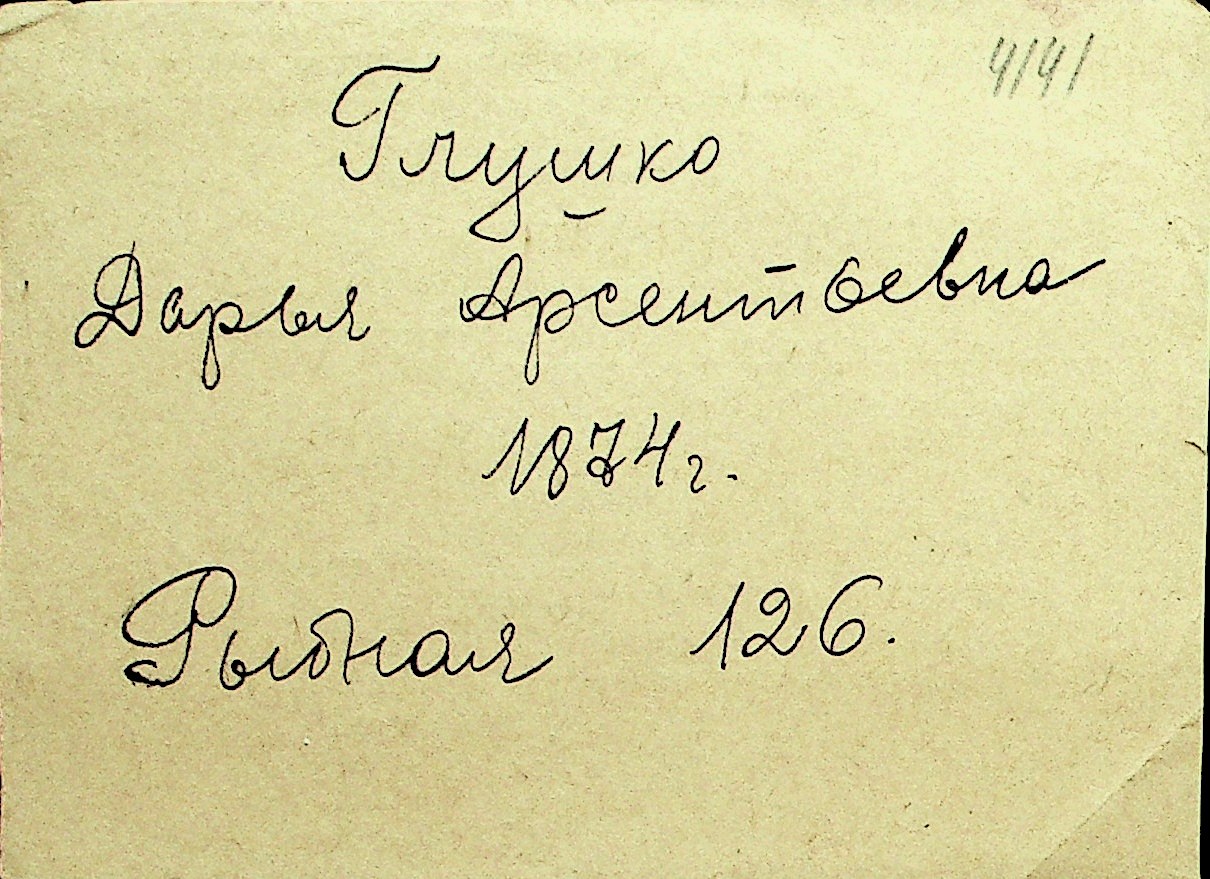 4141
Глушко
Дарья Арсентьевна
1874 г.
Рыбная 126.